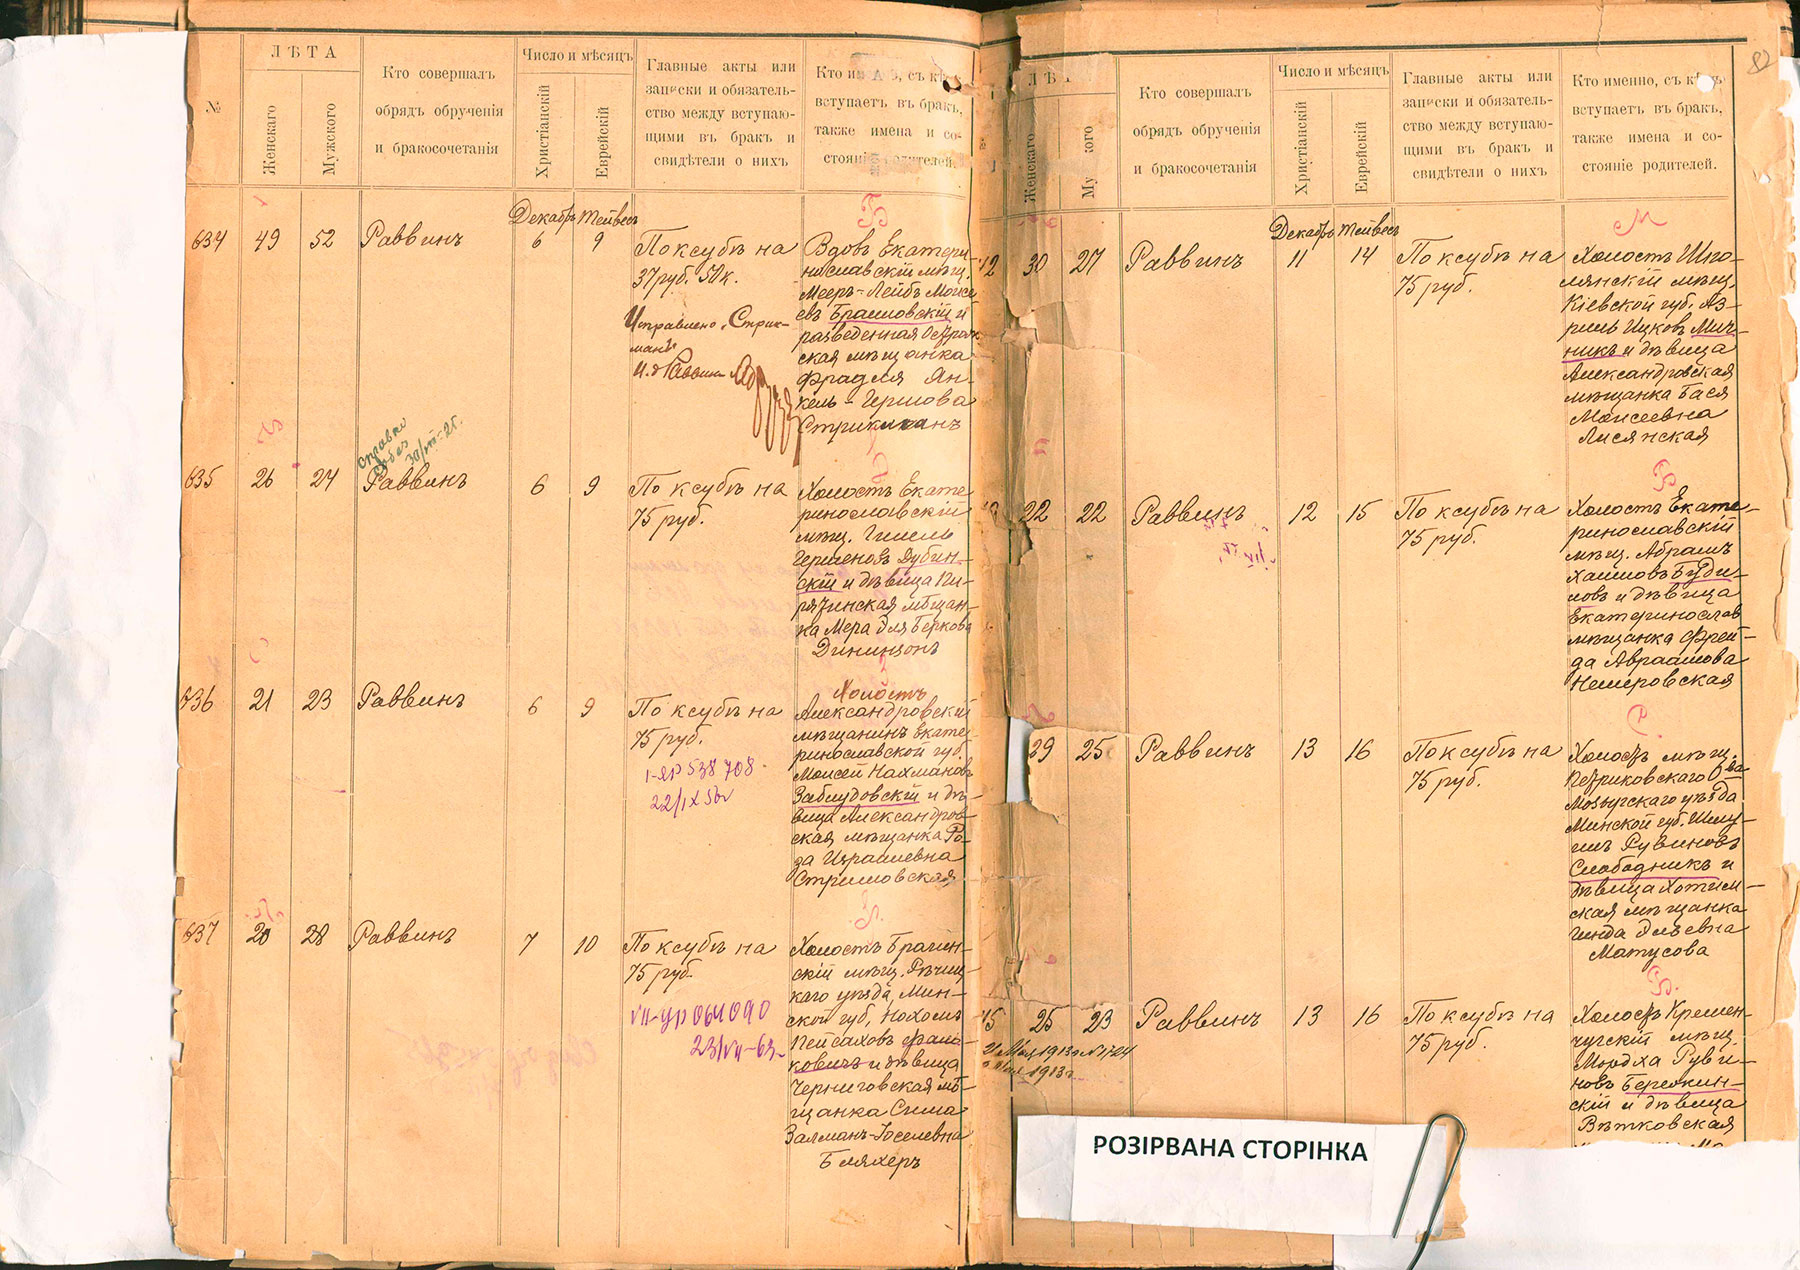 №
ЛѢТА
Женскаго
Мужского
Кто совершалъ
обрядъ обрученія
и бракосочетанія
Число и мѣсяцъ
Христіанскій
Еврейскій
Главные акты или
записки и обязатель-
ство между вступаю-
щими въ бракъ и
свидѣтели о нихъ
вступаетъ въ бракъ,
также имена и со-
стояніе родителей.
Декабрь Тейвесъ
634 49 52 Раввинъ 6 9
По ксубѣ на
37 руб. 50 к.
Исправлено „Стрик-
манъ"
И. д. Раввина
Б
Вдовъ Екатери-
нославскій мѣщ.
Мееръ-Лейбъ Моисе-
евъ Браиловскій и
разведенная
ская мѣщанка
Фрадля Ян-
кель-Гершова
Стрикманъ
справка
635 26 24 Раввинъ 6 9
По ксубѣ на
75 руб.
Холостъ Екате-
ринославскій
мѣщ. Гилель
Гершеновъ Дубин-
скій и дѣвица Пи-
рятинская мѣщан-
ка Мера Беркова
Дининзонъ
636 21 23 Раввинъ 6 9
По ксубѣ на
75 руб.
I-ЯР 538708
22/IX 56
Холостъ
Александровскій
мѣщанинъ Екате-
ринославской губ.
Моисей Нахмановъ
Заблудовскій и дѣ-
вица Александров-
ская мѣщанка Ро-
за Израилевна
Стрилловская
637 20 28 Раввинъ 7 10
По ксубѣ на
75 руб.
VII-УР 064090
23/VII-63
Холостъ Брагин-
скій мѣщ. Рѣчиц-
каго уѣзда, Мин-
ской губ, Нохомъ
Пейсаховъ
ковичъ и дѣвица
Черниговская мѣ-
щанка Сима
Залманъ-Іоселевна
Бляхеръ
82
Женскаго
Кто совершалъ
обрядъ обрученія
и бракосочетанія
Число и мѣсяцъ
Христіанскій
Еврейскій
Главные акты или
записки и обязатель-
ство между вступаю-
щими въ бракъ и
свидѣтели о нихъ
Кто именно, съ кѣмъ
вступаетъ въ бракъ,
также имена и со-
стояніе родителей.
Декабрь Тейвесъ
30 27 Раввинъ 11 14
По ксубѣ на
75 руб.
М
Холостъ Шпо-
лянскій мѣщ.
Кіевской губ. Аз-
риль Ицковъ Мич-
никъ и дѣвица
Александровская
мѣщанка Бася
Моисеевна
Лисянская
22 22 Раввинъ 12 15
По ксубѣ на
75 руб.
Б
Холостъ Екате-
ринославскій
мѣщ. Абрамъ
Хаимовъ Буди-
ловъ и дѣвица
Екатеринослав
мѣщанка Фрей-
да Авраамова
Немеровская
29 25 Раввинъ 13 16
По ксубѣ на
75 руб.
С
Холостъ мѣщ.
Петриковскаго О-ва
Мозырскаго уѣзда
Минской губ. Шму-
иль Рувиновъ
Слободникъ и
дѣвица Хотим-
ская мѣщанка
Гинда
Матусова
25 23 Раввинъ 13 16
По ксубѣ на
75 руб.
1913 г. № 1724
1913 г
Б.
Холостъ Кремен-
чугскій мѣщ.
Мордха Руви-
новъ Бережин-
скій и дѣвица
Вѣтковская
РОЗІРВАНА СТОРІНКА